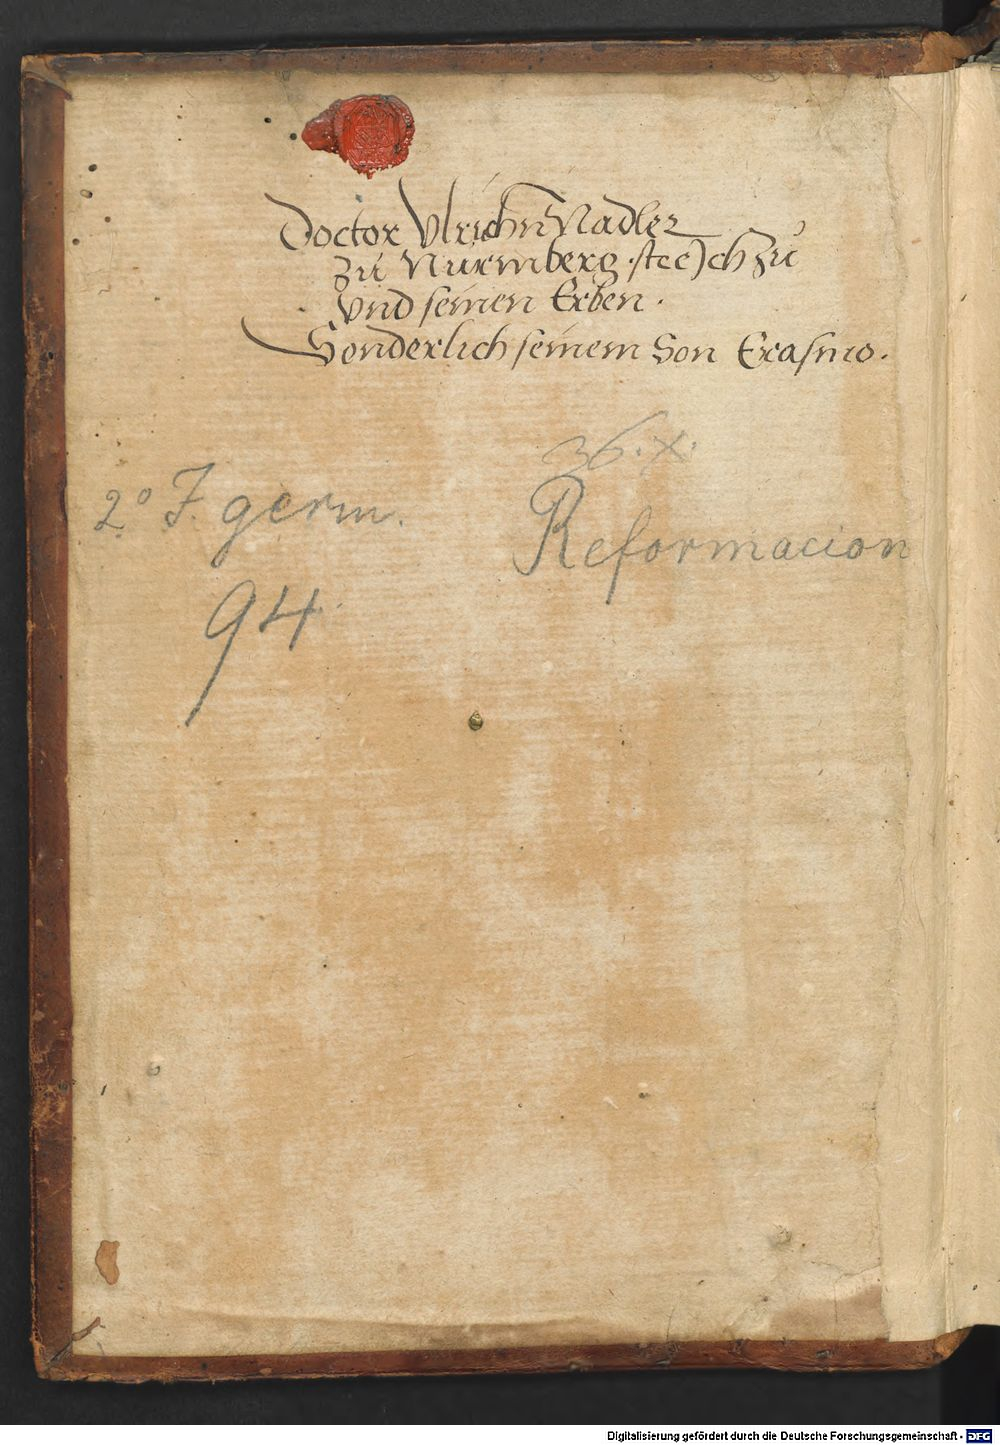 Doctor Vlrichn Nadler
zu Nurmberg · stee Jch zu
vnd seinen Erben ·
Sonderlich seinem Son Erasmo ·
36. X.
2° J. germ.
Reformacion
94
Digitalisierung gefördert durch die Deutsche Forschungsgemeinschaft - DFG